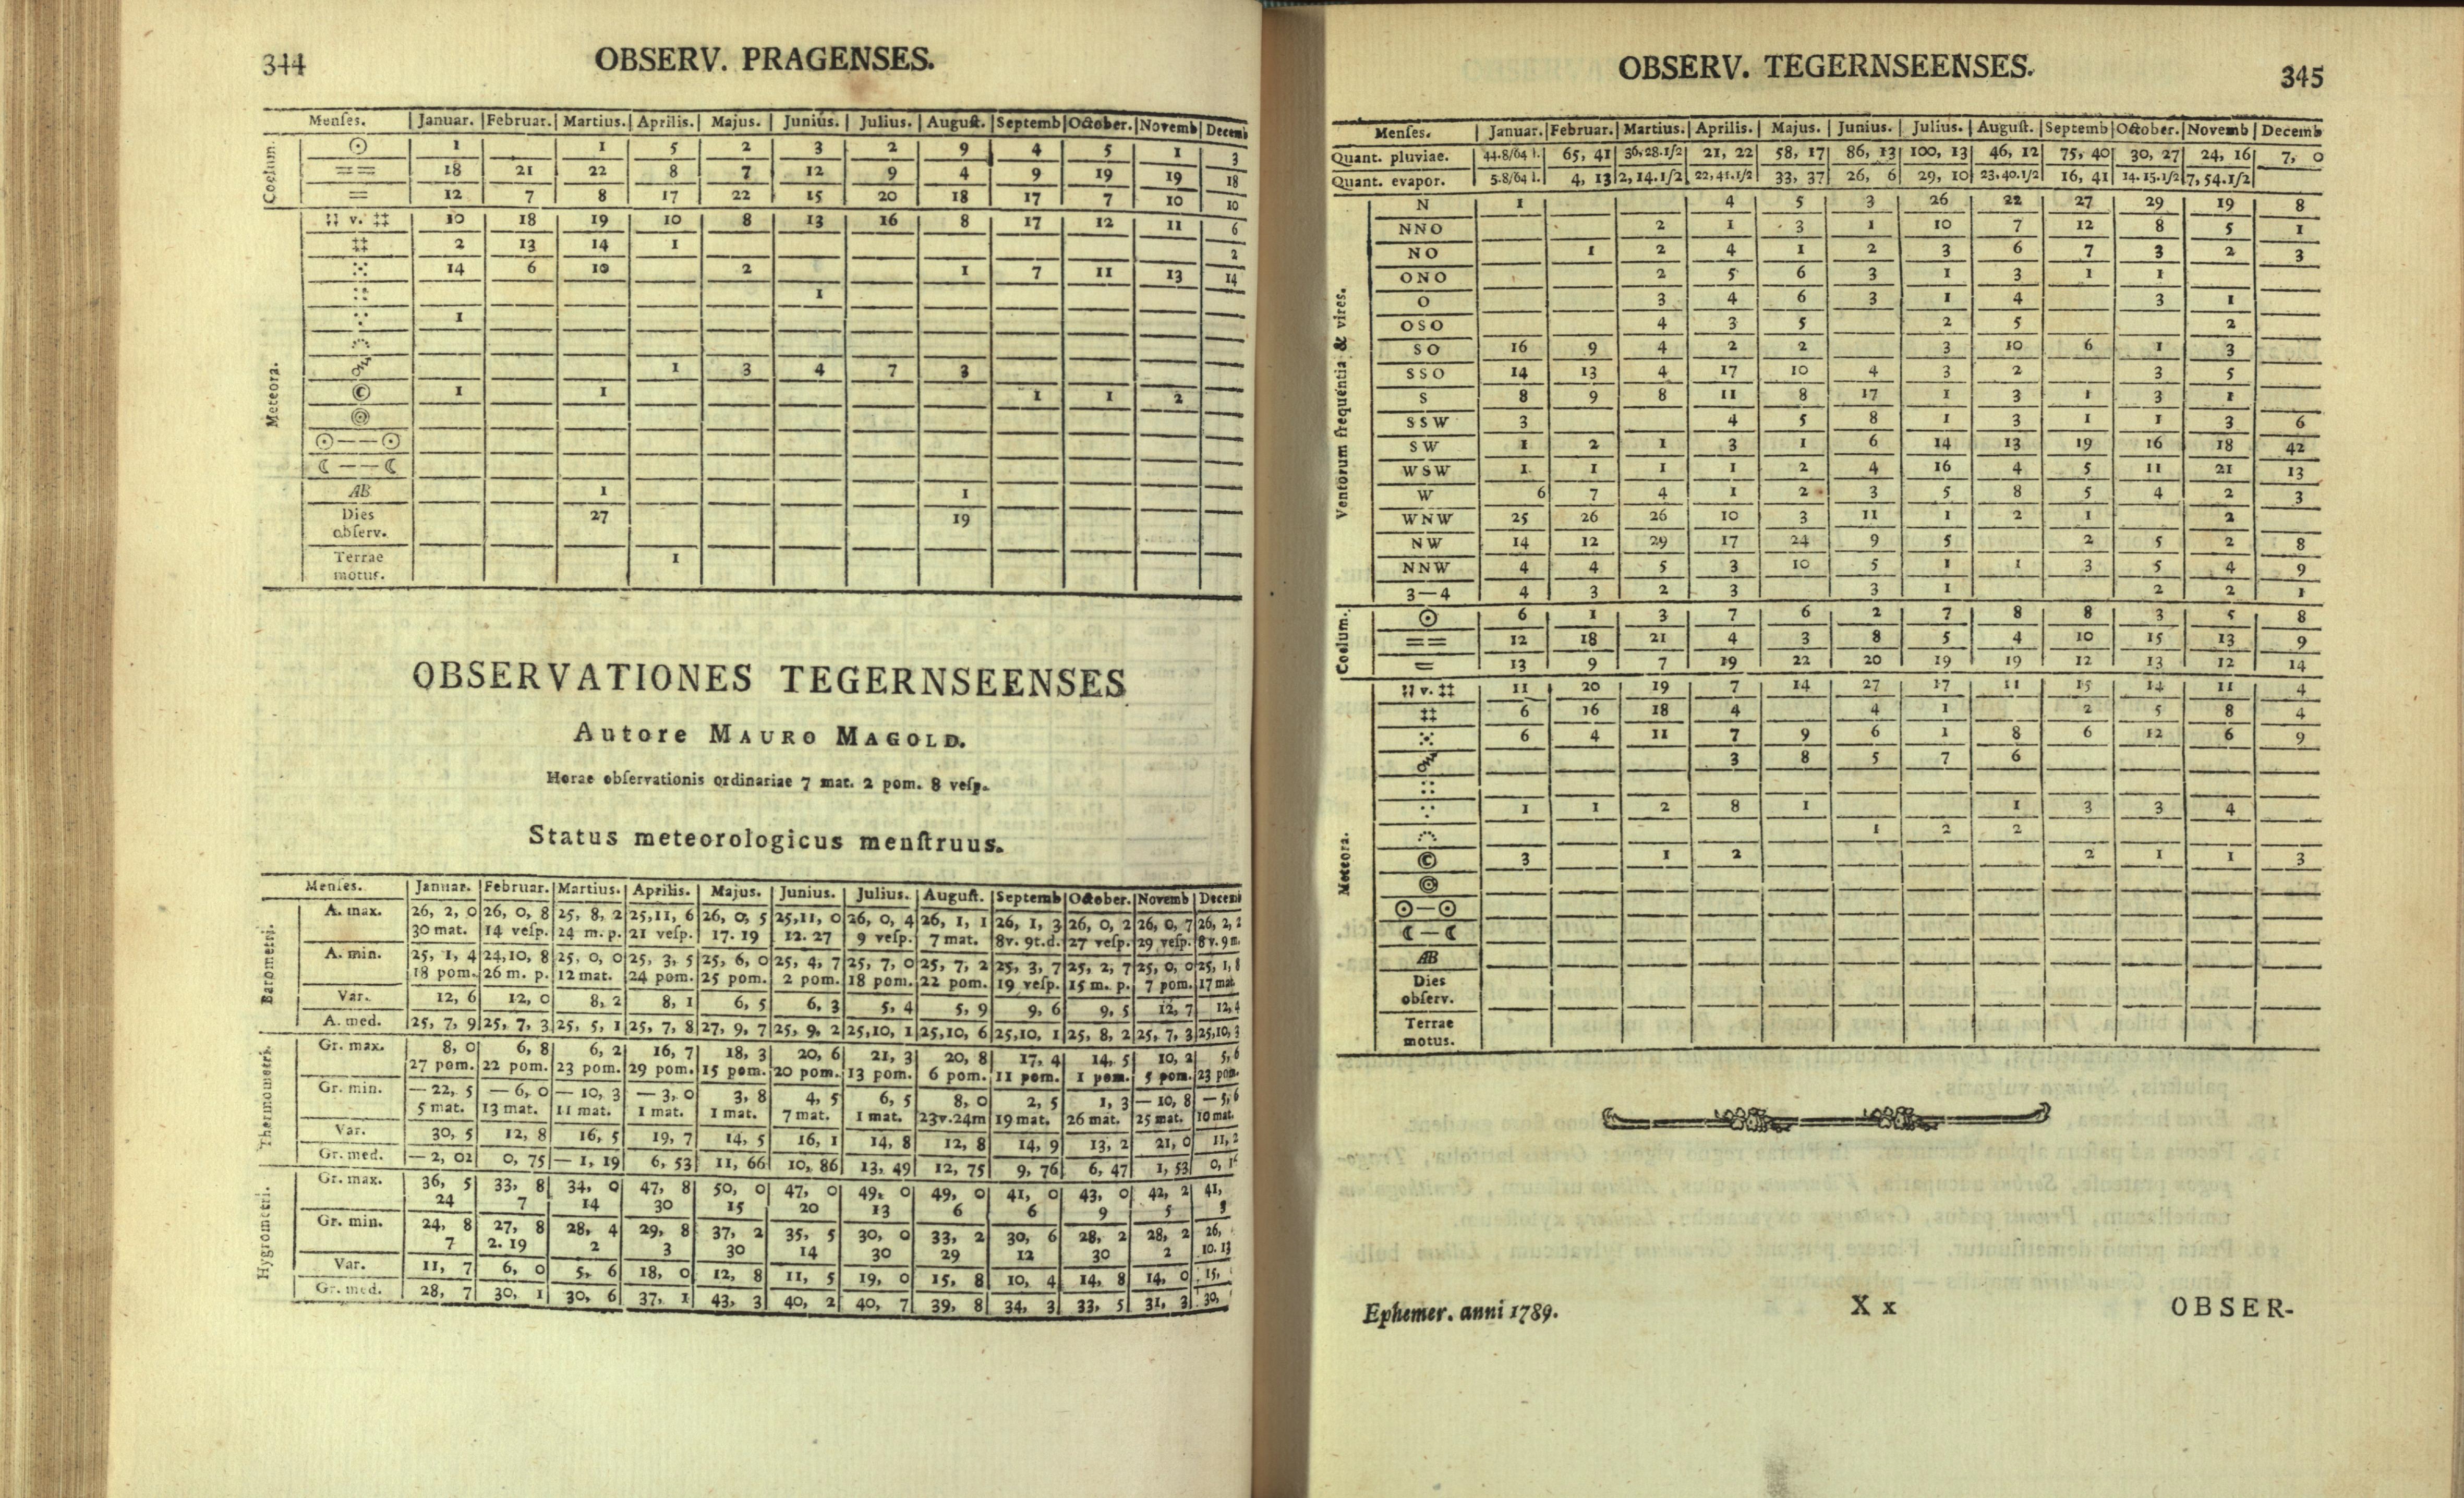 344
OBSERV. PRAGENSES.
Menſes. Januar. Februar. Martius. Aprilis. Majus. Junius. Julius. Auguſt. Septemb October. Novemb Decemb
Coelum.
☉ 1 1 5 2 3 2 9 4 5 1 3
== 18 21 22 8 7 12 9 4 9 19 19 18
= 12 7 8 17 22 15 20 18 17 7 10 10
Meteora.
¦¦ v. ‡‡ 10 18 19 10 8 13 16 8 17 12 11 6
‡‡ 2 13 14 1 2
⁙ 14 6 10 2 1 7 11 13 14
∷ 1
∵ 1
1 3 4 7 3
© 1 1 1 1 2
◎
☉——☉
☾——☾
AB 1 1
Dies obſerv. 27 19
Terrae motus. 1
OBSERVATIONES TEGERNSEENSES
Autore MAURO MAGOLD.
Horae obſervationis ordinariae 7 mat. 2 pom. 8 veſp.
Status meteorologicus menſtruus.
Menſes. Januar. Februar. Martius. Aprilis. Majus. Junius. Julius. Auguſt. Septemb October. Novemb Decemb
Barometri.
A. max. 26, 2, 0 26, 0, 8 25, 8, 2 25,11, 6 26, 0, 5 25,11, 0 26, 0, 4 26, 1, 1 26, 1, 3 26, 0, 2 26, 0, 7 26, 2, 2
30 mat. 14 veſp. 24 m. p. 21 veſp. 17. 19 12. 27 9 veſp. 7 mat. 8v. 9t.d. 27 veſp. 29 veſp. 8 v. 9 m.
A. min. 25, 1, 4 24,10, 8 25, 0, 0 25, 3, 5 25, 6, 0 25, 4, 7 25, 7, 0 25, 7, 2 25, 3, 7 25, 2, 7 25, 0, 0 25, 1, 8
18 pom. 26 m. p. 12 mat. 24 pom. 25 pom. 2 pom. 18 pom. 22 pom. 19 veſp. 15 m. p. 7 pom. 17 mat.
Var. 12, 6 12, 0 8, 2 8, 1 6, 5 6, 3 5, 4 5, 9 9, 6 9, 5 12, 7 12, 4
A. med. 25, 7, 9 25, 7, 3 25, 5, 1 25, 7, 8 27, 9, 7 25, 9, 2 25,10, 1 25,10, 6 25,10, 1 25, 8, 2 25, 7, 3 25,10, 3
Thermometri.
Gr. max. 8, 0 6, 8 6, 2 16, 7 18, 3 20, 6 21, 3 20, 8 17, 4 14, 5 10, 2 5, 6
27 pom. 22 pom. 23 pom. 29 pom. 15 pom. 20 pom. 13 pom. 6 pom. 11 pom. 1 pom. 5 pom. 23 pom.
Gr. min. — 22, 5 — 6, 0 — 10, 3 — 3, 0 3, 8 4, 5 6, 5 8, 0 2, 5 1, 3 — 10, 8 — 5, 6
5 mat. 13 mat. 11 mat. 1 mat. 1 mat. 7 mat. 1 mat. 23v.24m 19 mat. 26 mat. 25 mat. 10 mat.
Var. 30, 5 12, 8 16, 5 19, 7 14, 5 16, 1 14, 8 12, 8 14, 9 13, 2 21, 0 11, 2
Gr. med. — 2, 02 0, 75 — 1, 19 6, 53 11, 66 10, 86 13, 49 12, 75 9, 76 6, 47 1, 53 0,
Hygrometri.
Gr. max. 36, 5 33, 8 34, 0 47, 8 50, 0 47, 0 49, 0 49, 0 41, 0 43, 0 42, 2 41,
24 7 14 30 15 20 13 6 6 9 5
Gr. min. 24, 8 27, 8 28, 4 29, 8 37, 2 35, 5 30, 0 33, 2 30, 6 28, 2 28, 2 26,
7 2. 19 2 3 30 14 30 29 12 30 2 10. 13
Var. 11, 7 6, 0 5, 6 18, 0 12, 8 11, 5 19, 0 15, 8 10, 4 14, 8 14, 0 15,
Gr. med. 28, 7 30, 1 30, 6 37, 1 43, 3 40, 2 40, 7 39, 8 34, 3 33, 5 31, 3 30,
OBSERV. TEGERNSEENSES.
345
Menſes. Januar. Februar. Martius. Aprilis. Majus. Junius. Julius. Auguſt. Septemb October. Novemb Decemb
Quant. pluviae. 44.8/64 l. 65, 41 36,28.1/2 21, 22 58, 17 86, 13 100, 13 46, 12 75, 40 30, 27 24, 16 7, 0
Quant. evapor. 5.8/64 l. 4, 13 2, 14.1/2 22,41.1/2 33, 37 26, 6 29, 10 23,40.1/2 16, 41 14.15.1/2 7, 54.1/2
Ventorum frequentia & vires.
N 1 4 5 3 26 22 27 29 19 8
NNO 2 1 3 1 10 7 12 8 5 1
NO 1 2 4 1 2 3 6 7 3 2 3
ONO 2 5 6 3 1 3 1 1
O 3 4 6 3 1 4 3 1
OSO 4 3 5 2 5 2
SO 16 9 4 2 2 3 10 6 1 3
SSO 14 13 4 17 10 4 3 2 3 5
S 8 9 8 11 8 17 1 3 1 3 1
SSW 3 4 5 8 1 3 1 1 3 6
SW 1 2 1 3 1 6 14 13 19 16 18 42
WSW 1 1 1 1 2 4 16 4 5 11 21 13
W 6 7 4 1 2 3 5 8 5 4 2 3
WNW 25 26 26 10 3 11 1 2 1 2
NW 14 12 29 17 24 9 5 2 5 2 8
NNW 4 4 5 3 10 5 1 1 3 5 4 9
3—4 4 3 2 3 3 1 2 2 1
Coelum.
☉ 6 1 3 7 6 2 7 8 8 3 5 8
== 12 18 21 4 3 8 5 4 10 15 13 9
= 13 9 7 19 22 20 19 19 12 13 12 14
Meteora.
¦¦ v. ‡‡ 11 20 19 7 14 27 17 11 15 14 11 4
‡‡ 6 16 18 4 4 1 2 5 8 4
⁙ 6 4 11 7 9 6 1 8 6 12 6 9
3 8 5 7 6
∷
∵ 1 1 2 8 1 1 3 3 4
1 2 2
© 3 1 2 2 1 1 3
◎
☉—☉
☾—☾
AB
Dies obſerv.
Terrae motus.
Ephemer. anni 1789.
X x
OBSER-